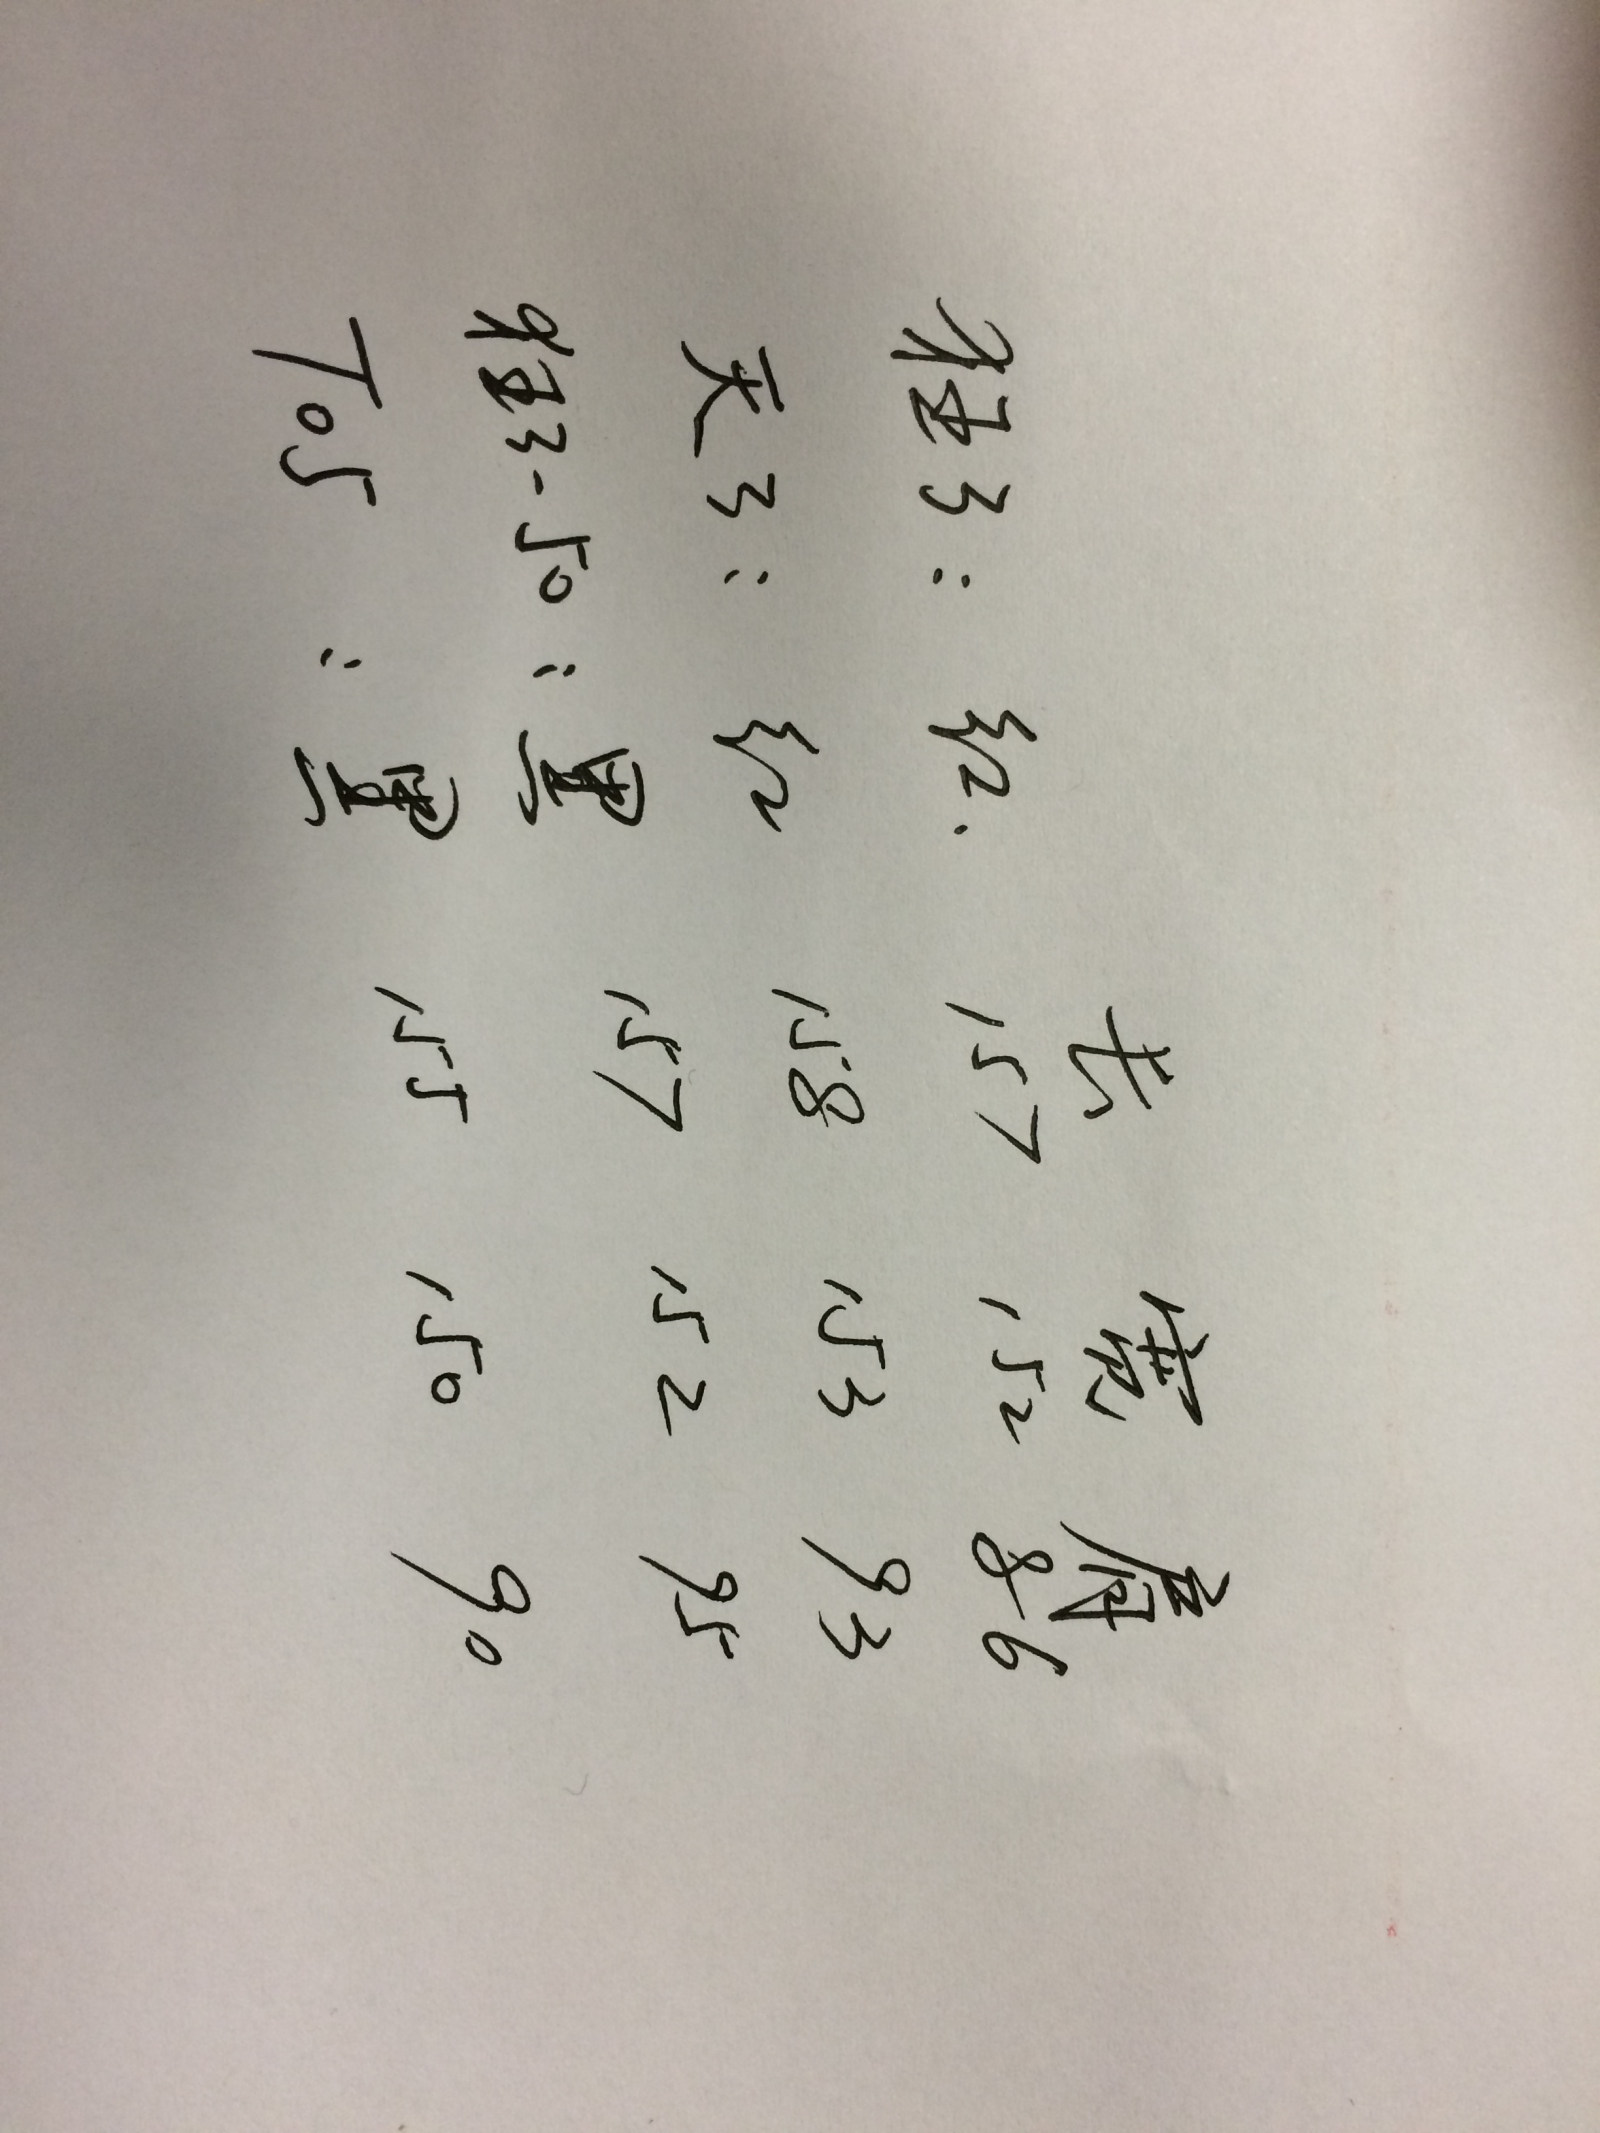 长 宽 厚
狂3: 红. 157 152 86
天3: 红 158 153 93
狂3-50: 黑 157 152 95
T05: 黑 155 150 90